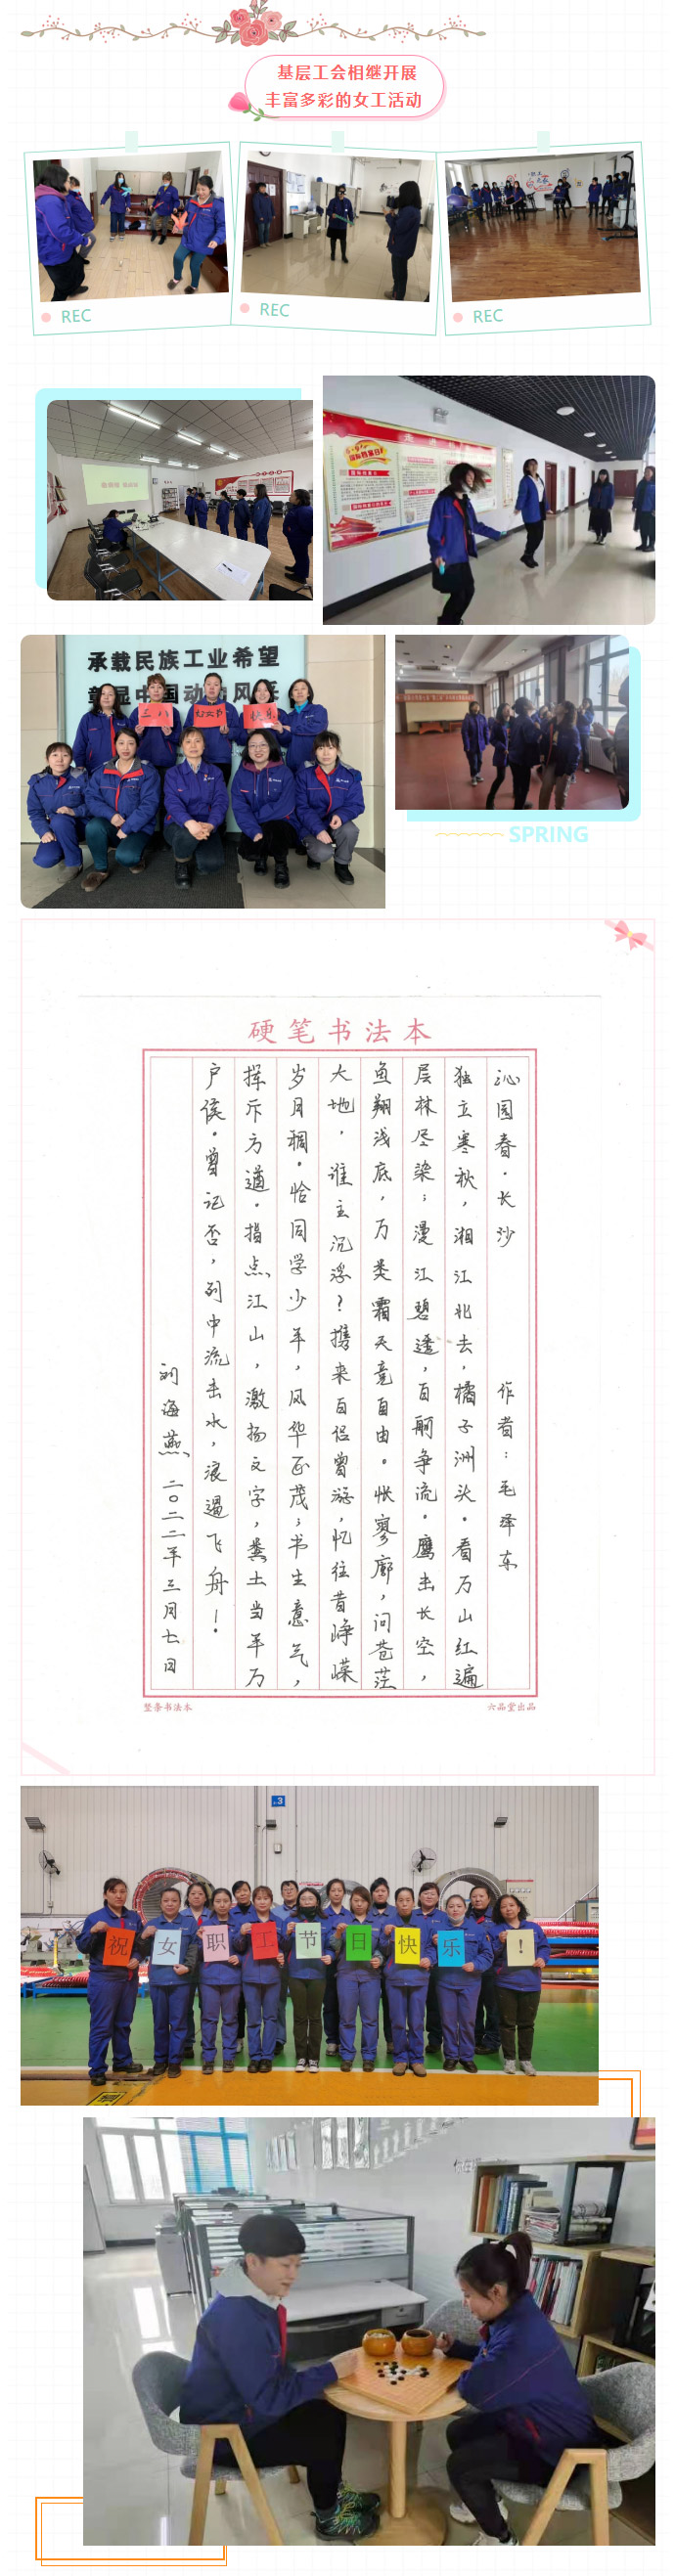 基层工会相继开展
丰富多彩的女工活动
REC
REC
REC
承载民族工业希望
三八
妇女节
快乐
SPRING
硬笔书法本
沁园春·长沙 作者：毛泽东
独立寒秋，湘江北去，橘子洲头。看万山红遍
层林尽染；漫江碧透，百舸争流。鹰击长空，
鱼翔浅底，万类霜天竞自由。怅寥廓，问苍茫
大地，谁主沉浮？携来百侣曾游，忆往昔峥嵘
岁月稠。恰同学少年，风华正茂；书生意气，
挥斥方遒。指点江山，激扬文字，粪土当年万
户侯。曾记否，到中流击水，浪遏飞舟！
刘海燕 二〇二二年三月七日
竖条书法本
六品堂出品
祝女职工节日快乐！